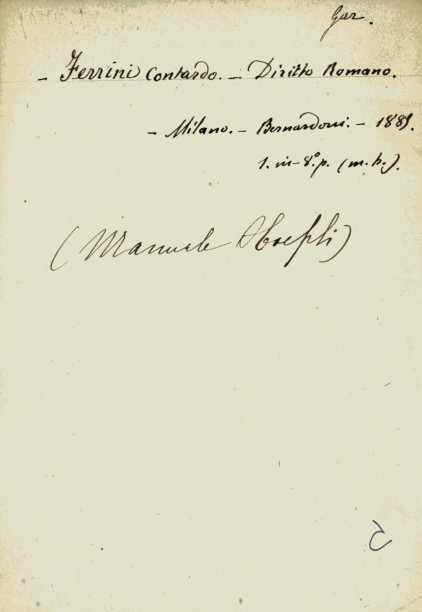 Gar.
- Ferrini Contardo. - Diritto Romano.
- Milano. - Bernardoni. - 1885.
1. in-8º. p. (m. h.).
(Manuale Hoepli)